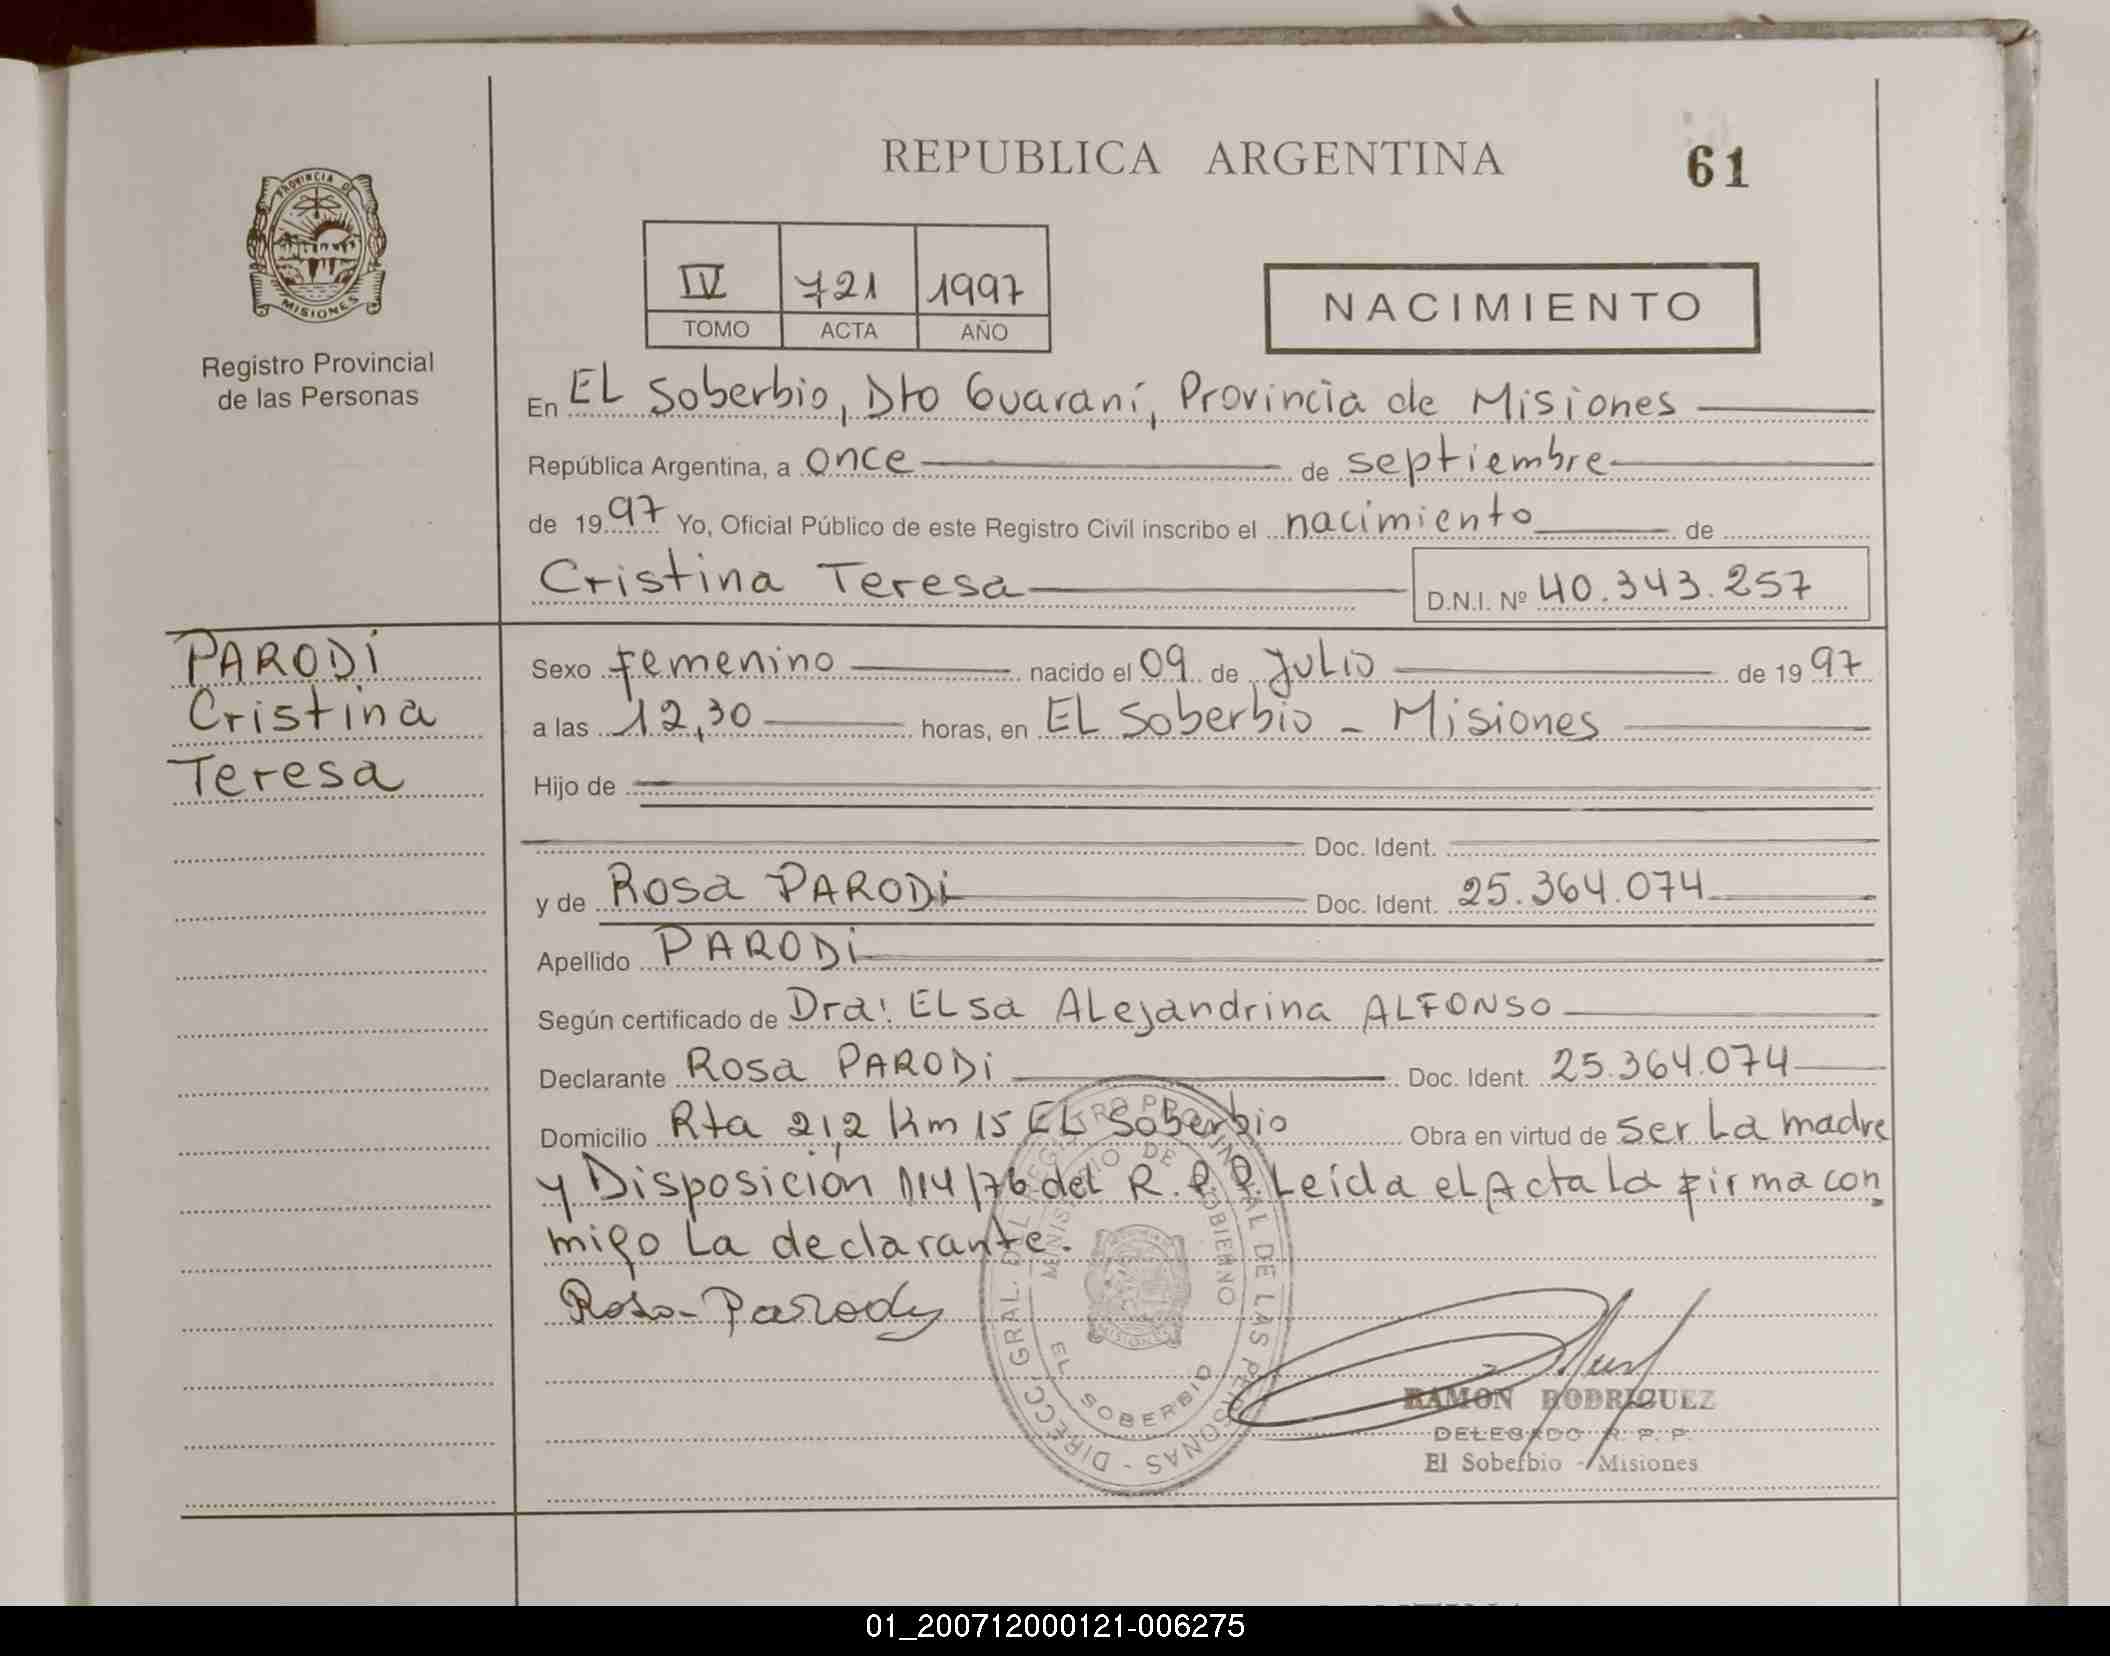 REPUBLICA ARGENTINA
61
PROVINCIA DE
MISIONES
Registro Provincial
de las Personas
IV 721 1997
TOMO ACTA AÑO
NACIMIENTO
En EL Soberbio, Dto Guaraní, Provincia de Misiones
República Argentina, a once de septiembre
de 1997 Yo, Oficial Público de este Registro Civil inscribo el nacimiento de
Cristina Teresa D.N.I. Nº 40.343.257
PARODI
Cristina
Teresa
Sexo Femenino nacido el 09 de Julio de 1997
a las 12,30 horas, en EL Soberbio - Misiones
Hijo de
Doc. Ident.
y de Rosa PARODI Doc. Ident. 25.364.074
Apellido PARODI
Según certificado de Dra: ELsa ALejandrina ALFONSO
Declarante Rosa PARODI Doc. Ident. 25.364.074
Domicilio Rta 212 Km 15 EL Soberbio Obra en virtud de ser La madre
y Disposición 114/76 del R.P.P. Leída el Acta La firma con
migo La declarante.
Rosa Parody
DIRECC. GRAL. DEL REGISTRO PROVINCIAL DE LAS PERSONAS -
MINISTERIO DE GOBIERNO
MISIONES
EL SOBERBIO
RAMON RODRIGUEZ
DELEGADO R. P. P.
El Soberbio - Misiones
01_200712000121-006275